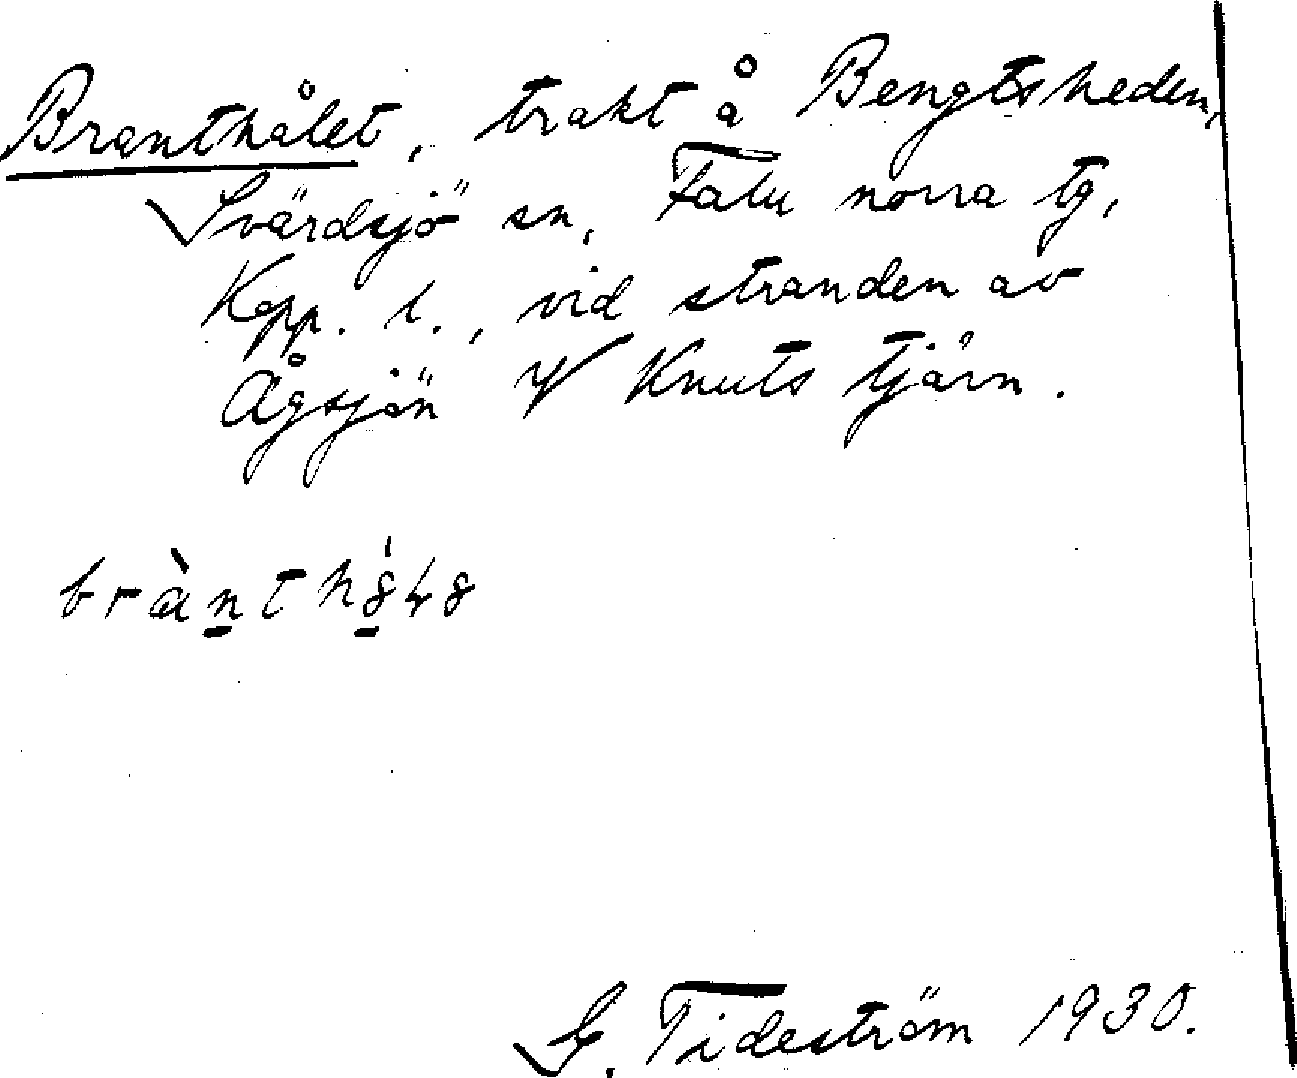 Branthålet, trakt å Bengtsheden,
Svärdsjö sn, Falu norra tg,
Kopp. l., vid stranden av
Ågsjön V Knuts tjärn.
G. Tideström 1930.